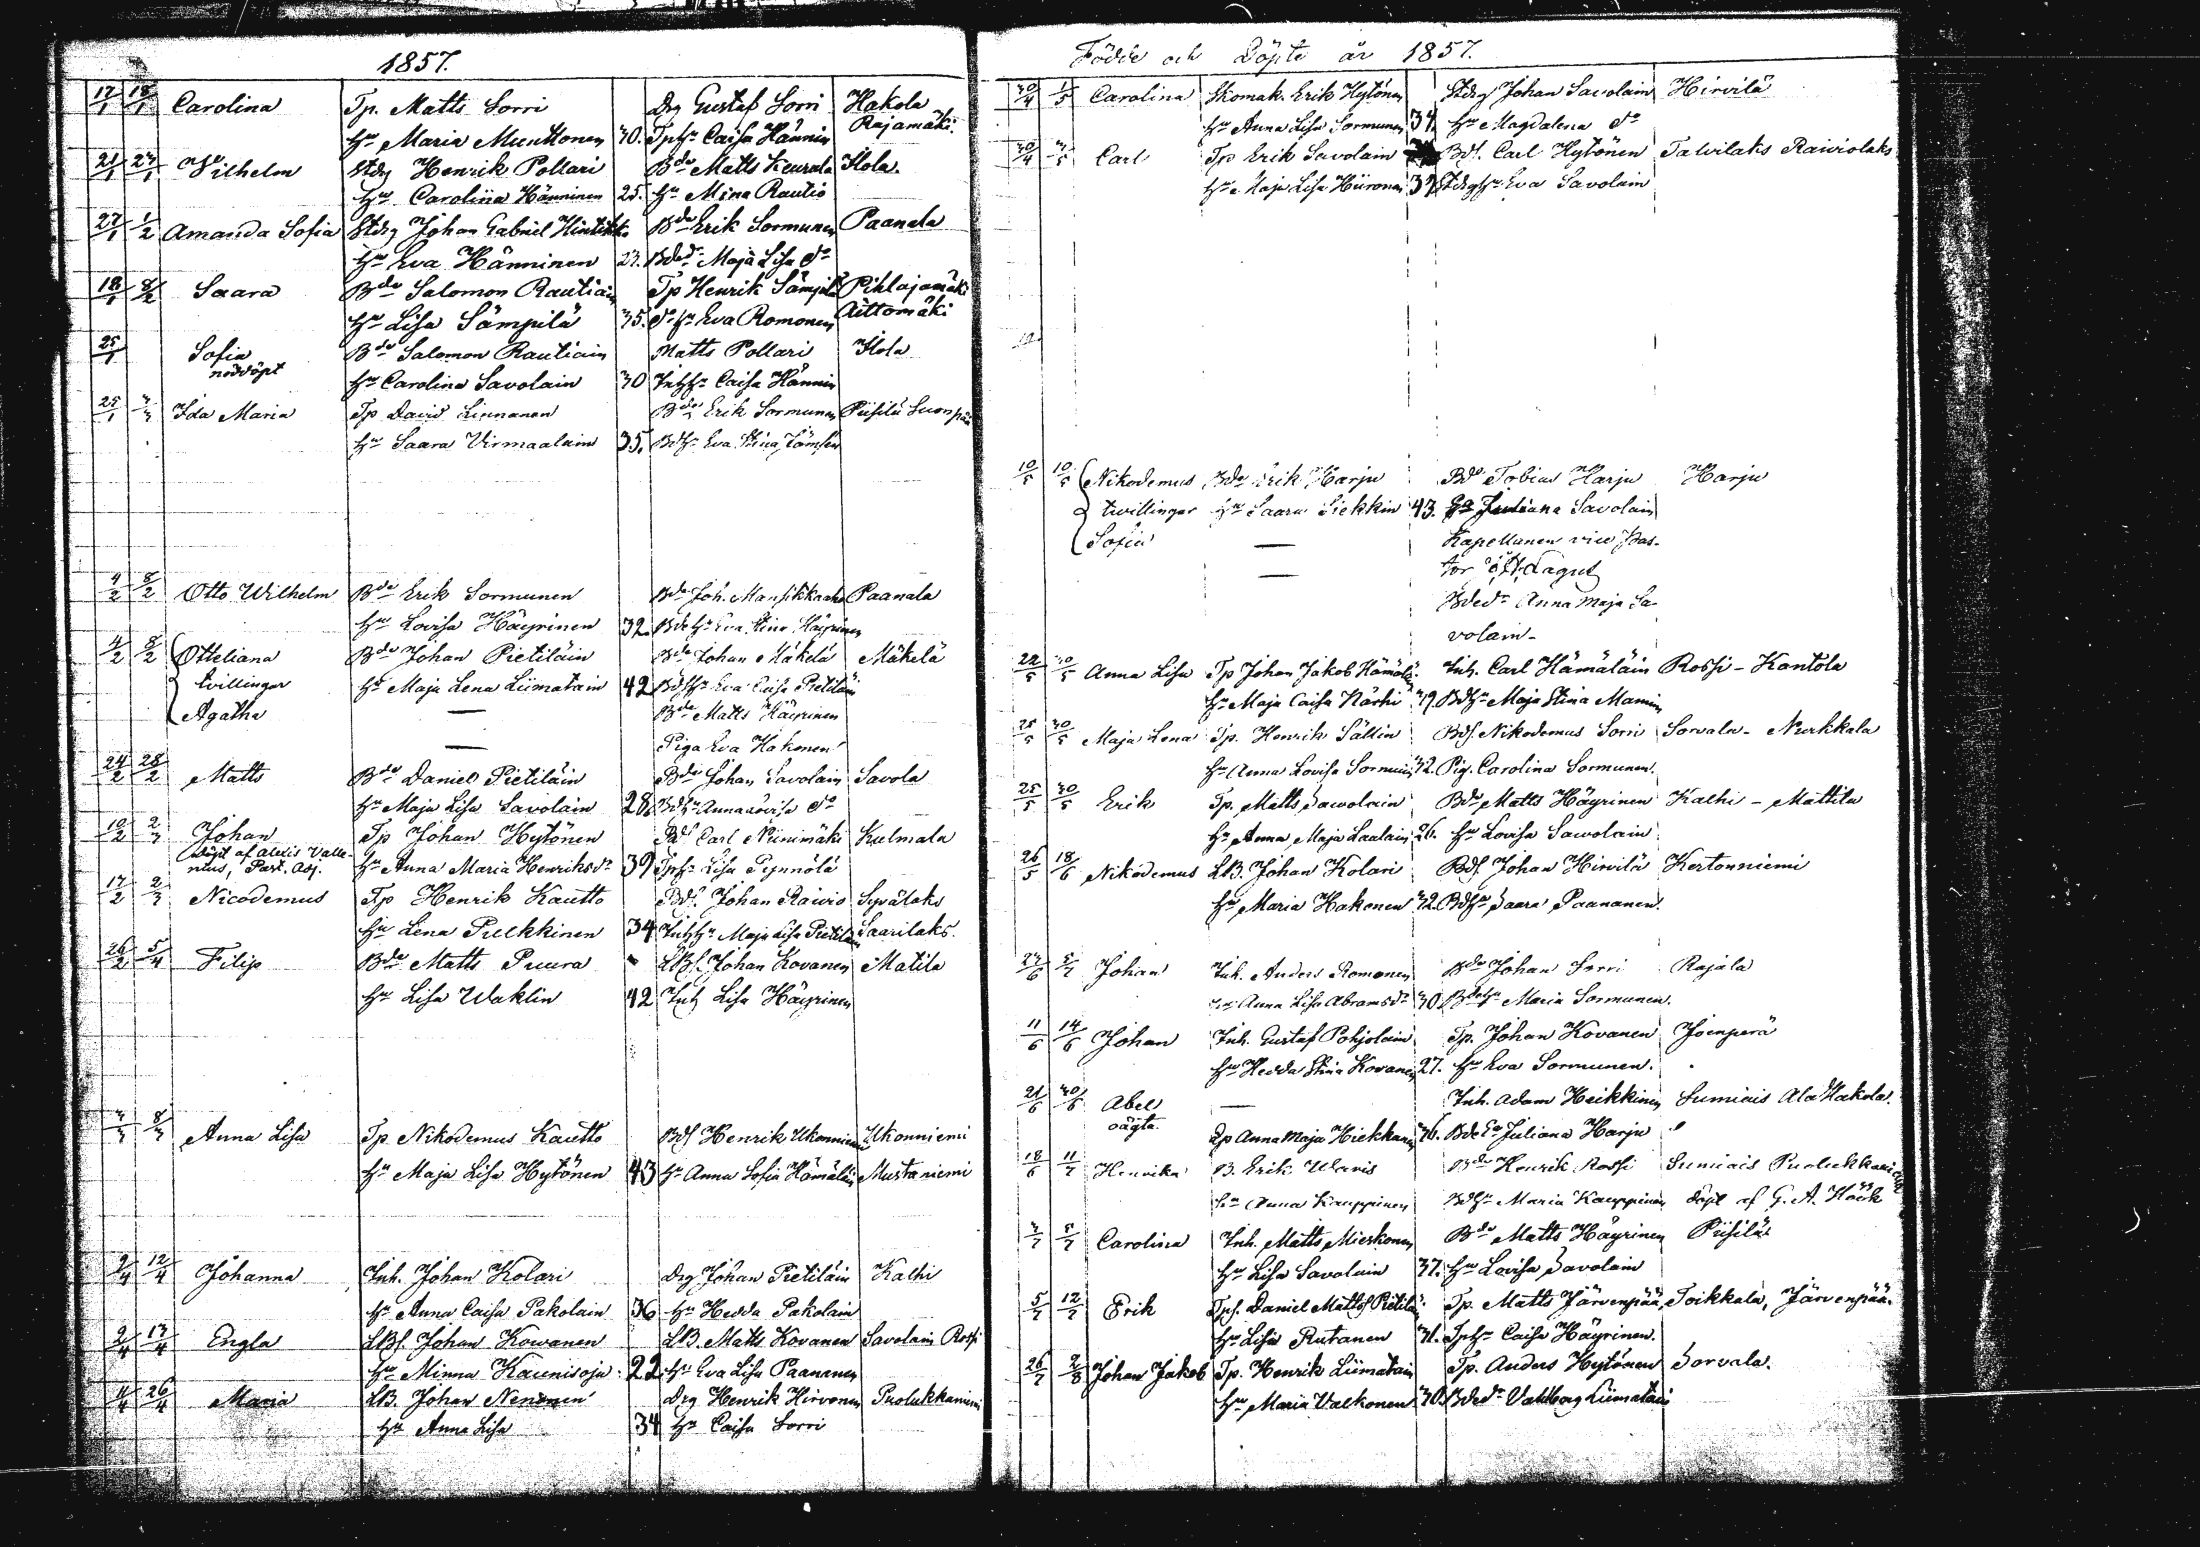 1857.
17/1 18/1 Carolina Tp. Matts Sorri Drg Gustaf Sorri Hakola
Hu Maria Muuttonen 30. Tphu Caisa Hännin Rajamäki.
21/1 27/1 Wilhelm Stdrg Henrik Pollari Bde Matts Keurala Ilola.
Hu Caroliina Hänninen 25. Hu Mina Rautio
27/1 1/2 Amanda Sofia Stdrg Johan Gabriel Hintikka Bde Erik Sormunen Paanala
Hu Eva Hänninen 27. Bdedr Maja Lisa do
18/1 8/2 Saara Bde Salomon Rautiain Tp Henrik Sämpilä Pihlajamäki
Hu Lisa Sämpilä 35. do hu Eva Romonen Aittomäki
25/1 Sofia Bde Salomon Rautiain Matts Pollari Ilola
nöddöpt Hu Carolina Savolain 30 Inhhu Caisa Hännin
25/1 Ida Maria Tp David Linnanen Bde Erik Sormunen Piisilä Suonpää
Hu Saara Virmaalain 35. Bdhu Eva Stina Jämsen
4/2 8/2 Otto Wilhelm Bde Erik Sormunen Bde Joh. Mansikkaaho Paanala
Hu Lovisa Häyrinen 32. Bdehu Eva Stina Häyrinen
4/2 8/2 Otteliana Bde Johan Pietiläin Bde Johan Mäkelä Mäkelä
tvillingar Hu Maja Lena Liimatain 42 Bdshu Eva Caisa Pietiläin
Agatha — Bde Matts Häyrinen
— Piga Eva Hakonen
24/2 28/2 Matts Bde Daniel Pietiläin Bde Johan Savolain Savola
Hu Maja Lisa Savolain 28. Bdhu Anna Lovisa do
10/2 2/3 Johan Tp Johan Hytönen Bds Carl Niinimäki Kulmala
döpt af Alexis Valle-
nius, Past. Adj. Hu Anna Maria Henriksdr 39 Tphu Lisa Pynnölä
17/2 2/3 Nicodemus Tp Henrik Kautto Bds. Johan Raivio Syvälaks
Hu Lena Pulkkinen 34 Inhhu Maja Lisa Pietiläin Saarilaks.
26/2 5/4 Filip Bde Matts Puura LBs. Johan Kovanen Matila
Hu Lisa Waklin 42 Inh Lisa Häyrinen
7/3 8/3 Anna Lisa Tp Nikodemus Kautto Bds Henrik Ukonniemi Ukonniemi
Hu Maja Lisa Hytönen 43 Hu Anna Sofia Hämäläin Mustaniemi
2/4 12/4 Johanna Inh. Johan Kolari Drg Johan Pietiläin Kathi
Hu Anna Caisa Pakolain 36 Hu Hedda Pakolain
2/4 13/4 Engla LBs. Johan Kowanen LB. Matts Kovanen Savolain Rossi
Hu Minna Kaunisoja 22 Hu Eva Lisa Paananen
4/4 26/4 Maria LB. Johan Nenonen Drg Henrik Hirvonen Puolukkaniemi
Hu Anna Lisa 34 Hu Caisa Sorri
Födde och Döpte år 1857.
30/4 1/5 Carolina Skomak. Erik Hytönen Stdrg Johan Savolain Hirvilä
Hu Anna Lisa Sormunen 34. Hu Magdalena do
30/4 3/5 Carl Tp Erik Savolain Bds. Carl Hytönen Talvilaks Raiviolaks
Hu Maja Lisa Hiironen 37 Stdrghu Eva Savolain
10/5 10/5 Nikodemus Bde Erik Harju Bde Tobias Harju Harju
tvillingar Hu Saara Siekkin 43. Juliana Savolain
Sofia — Kapellanen vice Pas-
— tor
Bdedr Anna Maja Sa-
volain-
22/5 30/5 Anna Lisa Tp Johan Jakob Hämäläin Inh. Carl Hämäläin Rossi - Kantola
Hu Maja Caisa Närhi 39. Bdhu Maja Stina Mannin
25/5 30/5 Maja Lena Tp. Henrik Sällin Bds. Nikodemus Sorri Sorvala - Nurkkala
Hu Anna Lovisa Sormunen 32. Pig. Carolina Sormunen.
25/5 30/5 Erik Tp. Matts Savolain Bde Matts Häyrinen Kathi - Mattila
Hu Anna Maja Laalain 26. Hu Lovisa Savolain
26/5 18/6 Nikodemus LB. Johan Kolari Bds. Johan Hirvilä Kertonniemi
Hu Maria Hakonen 32. Bdshu Saara Paananen.
27/6 5/7 Johan Inh. Anders Romonen Bde Johan Sorri Rajala
Hu Anna Lisa Abramsdr 30. Bdehu Maria Sormunen.
11/6 14/6 Johan Inh. Gustaf Pohjolain Tp. Johan Kovanen Joenperä
Hu Hedda Stina Kovanen 27. Hu Eva Sormunen.
21/6 30/6 Abel — Inh. Adam Heikkinen Sumiais Ala Hakola.
oägta. Anna Maja Hiekkanen 36. Juliana Harju
18/6 11/7 Henrika B. Erik Ulvris Bde Henrik Rossi Sumiais Puolukkaniemi
Hu Anna Kauppinen Bdhu Maria Kauppinen döpt af G. A. Höök
3/7 5/7 Carolina Inh. Matts Mierkonen Bde Matts Häyrinen Piisilä
Hu Lisa Savolain 37. Hu Lovisa Savolain
5/7 12/7 Erik Tps. Daniel Mattss Pietiläin Tp. Matts Järvenpää Toikkala, Järvenpää.
Hu Lisa Rutanen 31. Tphu Caisa Häyrinen.
26/7 2/8 Johan Jakob Tp. Henrik Liimatain Tp. Anders Hytönen Sorvala.
Hu Maria Valkonen 30. Bdedr Valborg Liimatain